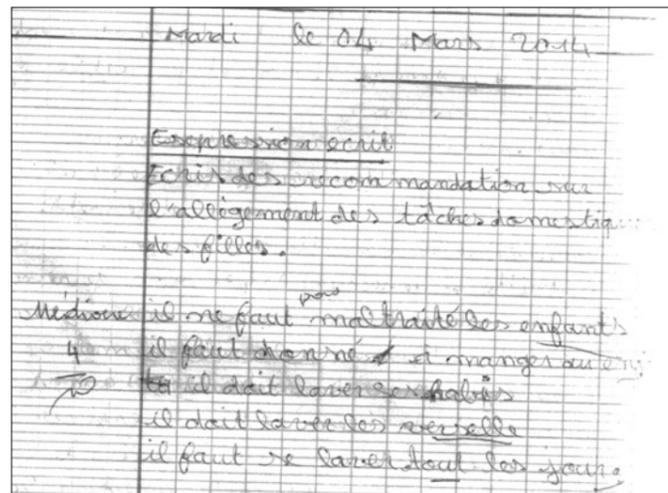 Mardi le 04 Mars 2014
Expression ecrit
Ecris des recommandation sur
l'allègement des tâches domestiq
des filles.
pas
Médiocre il ne faut maltraité les enfants
4 il faut donné à manger au
10 il doit laver ses habis
il doit laver les verselle
il faut se laver tout les jour.